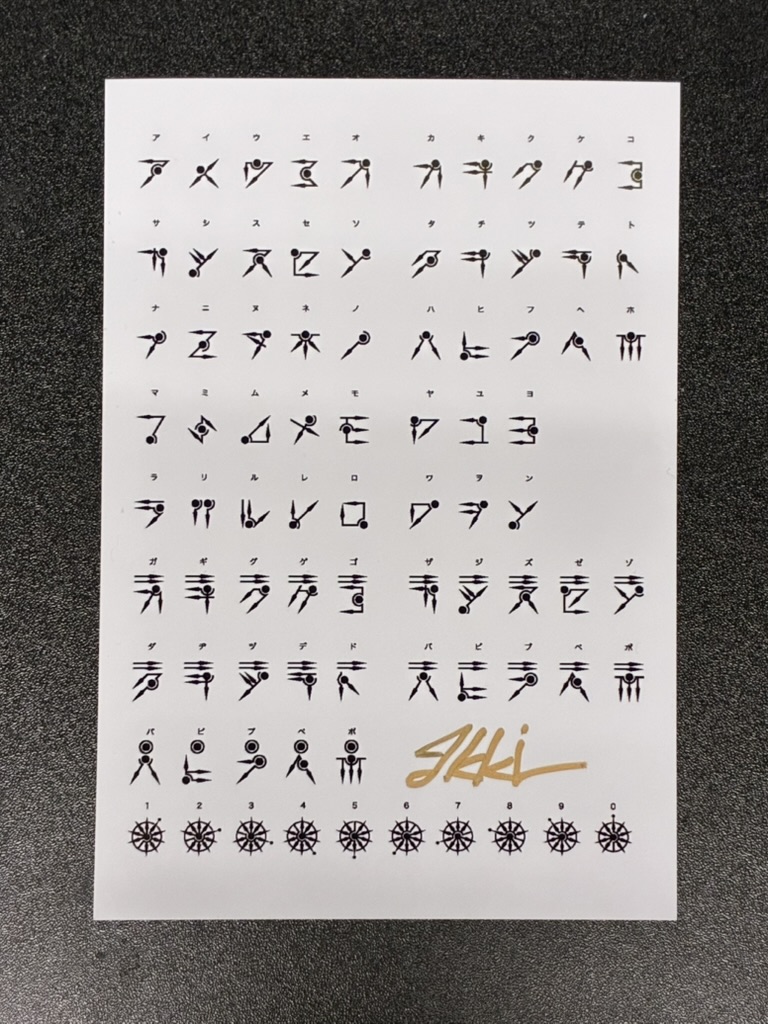 ア イ ウ エ オ カ キ ク ケ コ
サ シ ス セ ソ タ チ ツ テ ト
ナ ニ ヌ ネ ノ ハ ヒ フ ヘ ホ
マ ミ ム メ モ ヤ ユ ヨ
ラ リ ル レ ロ ワ ヲ ン
ガ ギ グ ゲ ゴ ザ ジ ズ ゼ ゾ
ダ ヂ ヅ デ ド バ ビ ブ ベ ボ
パ ピ プ ペ ポ
Ikki
1 2 3 4 5 6 7 8 9 0